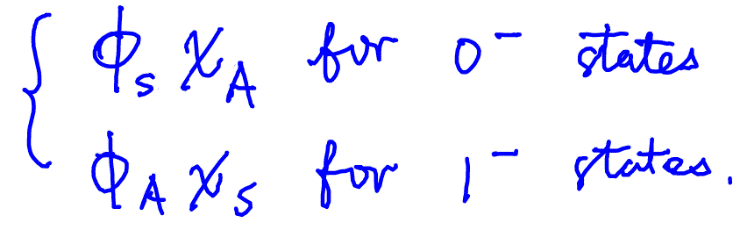 ϕ_S χ_A for 0⁻ states
ϕ_A χ_S for 1⁻ states.